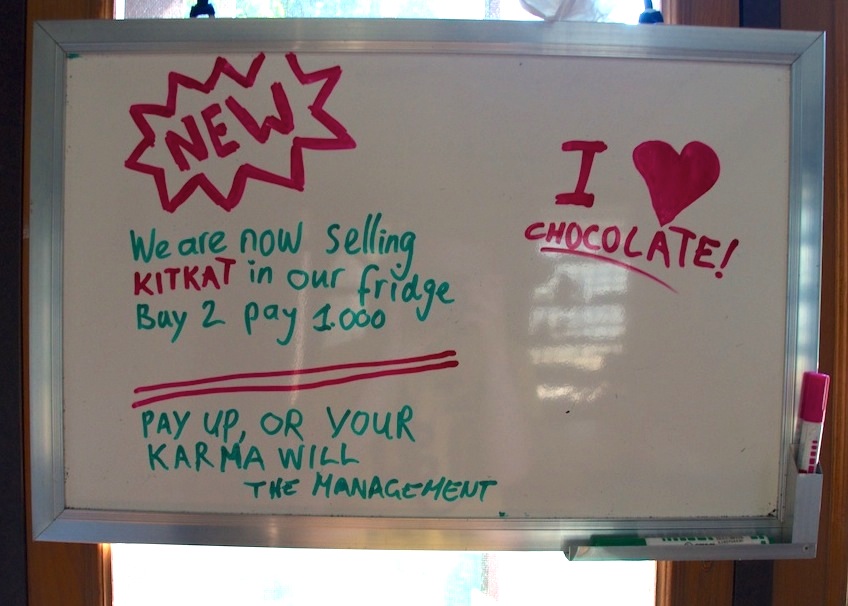 NEW
We are now selling
KITKAT in our fridge
Buy 2 pay 1.000
PAY UP, OR YOUR
KARMA WILL
THE MANAGEMENT
I ♥
CHOCOLATE!